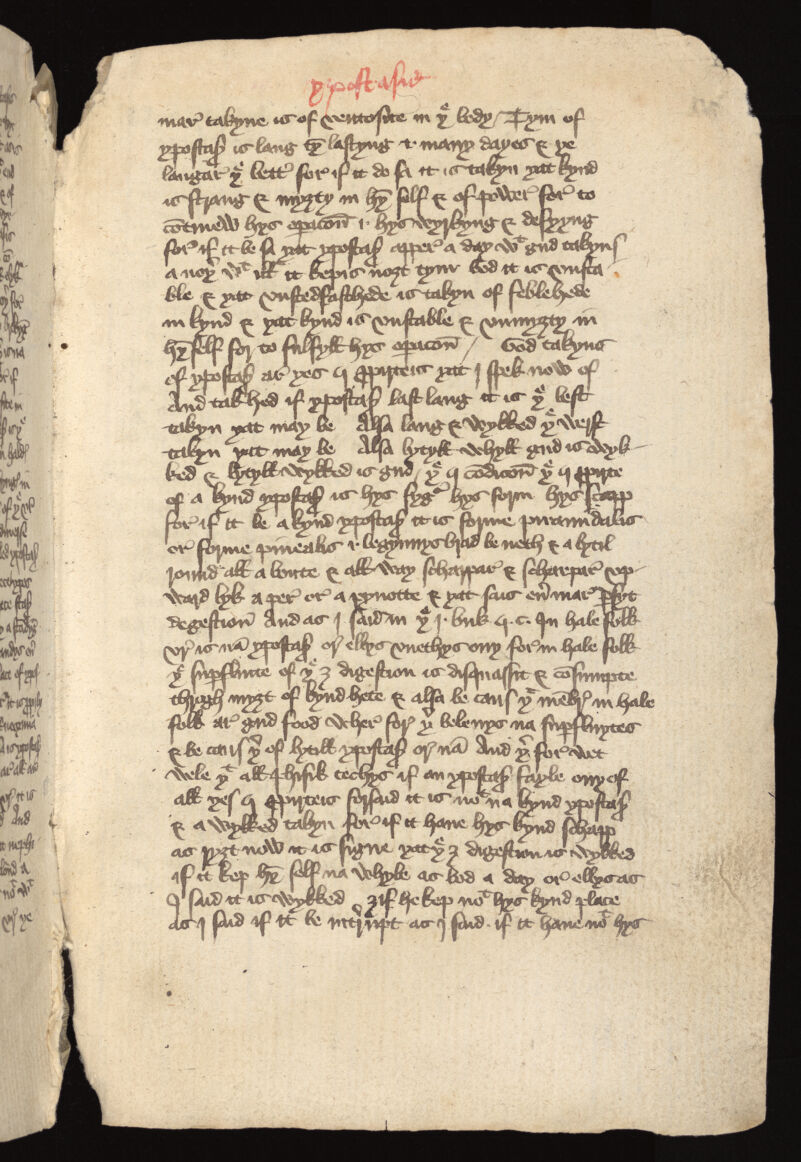 ypostasis
mar takyne is of ventosite in yͤ body / Tym of
ypostasꝭ is lang lastyng & many dayes & ye
langar yͤ bettͬ for if it do sa it is takyn yat kynd
is strang & myȝty in hȳ self & of power for to
cōtinew hys opacon̄ i. hys wyrkyng & defyyng
for if it be sa yat ypostasꝭ apper a day wͭ gud takyns
a noyͬ it kepis noȝt tym bod it is vnsta
ble & yat vnstedfasthede is takyn of feblehede
in kynd & yat kynd is vnstable & vnmyȝty in
hȳ self for to fulfyll hys opacon̄ / God takyns
of ypostasꝭ ar yes 4 ꝓpirteis yat I spek now of
And tak hed if ypostasꝭ last lang it is yͤ best
takyn yat may be Alsa lang & wykked yͤ werst
takyn yat may be Alsa lytyll whyll gud is wyk
ked & lytyll wykked is gud / yͤ 4 cōdicon̄ yͤ 4 ꝓpirte
of a kynd ypostasꝭ is hys fygͬ hys form hys schapp
for if it be a kynd ypostasꝭ it is forme piramidalis
or forme pinealis i. begynnys brad be neth & a lytil
round all a boute & all way scharpar & scharpar vp
ward lyk a per or a pynotte & yat saus eūmar ꝑfyt
degestion̄ And as I said in yͤ i. buk 4. c. In hale folk
vͬ is nā ypostasꝭ or ellys vnethys ony for in hale folk
yͤ supfluite of yͤ 3 digestion is & cōsumpte
throgh myȝt of kynd hete & alsa be caus yͤ mēbrꝭ in hale
folk ar gud food for yͬ belenys na supfluytes
& be caus yͬ of lytill ypostasꝭ or nā And yͬ for wet
wele yͭ all phisik techys if an ypostasꝭ fayle ony of
all yes 4 ꝓpirteis forsaid it is noͭ na kynd ypostasꝭ
& a wykked takyn for if it haue hys kynd schapp
as ryȝt now it is signe yat yͤ 3 digestion is wykked
if it kep hȳ self na whyle as bod a day or ellys as
I said it is wykked ȝif he kep noͭ hys kynd place
as I said if it be int̄rupt as I said . if it haue noͭ hys